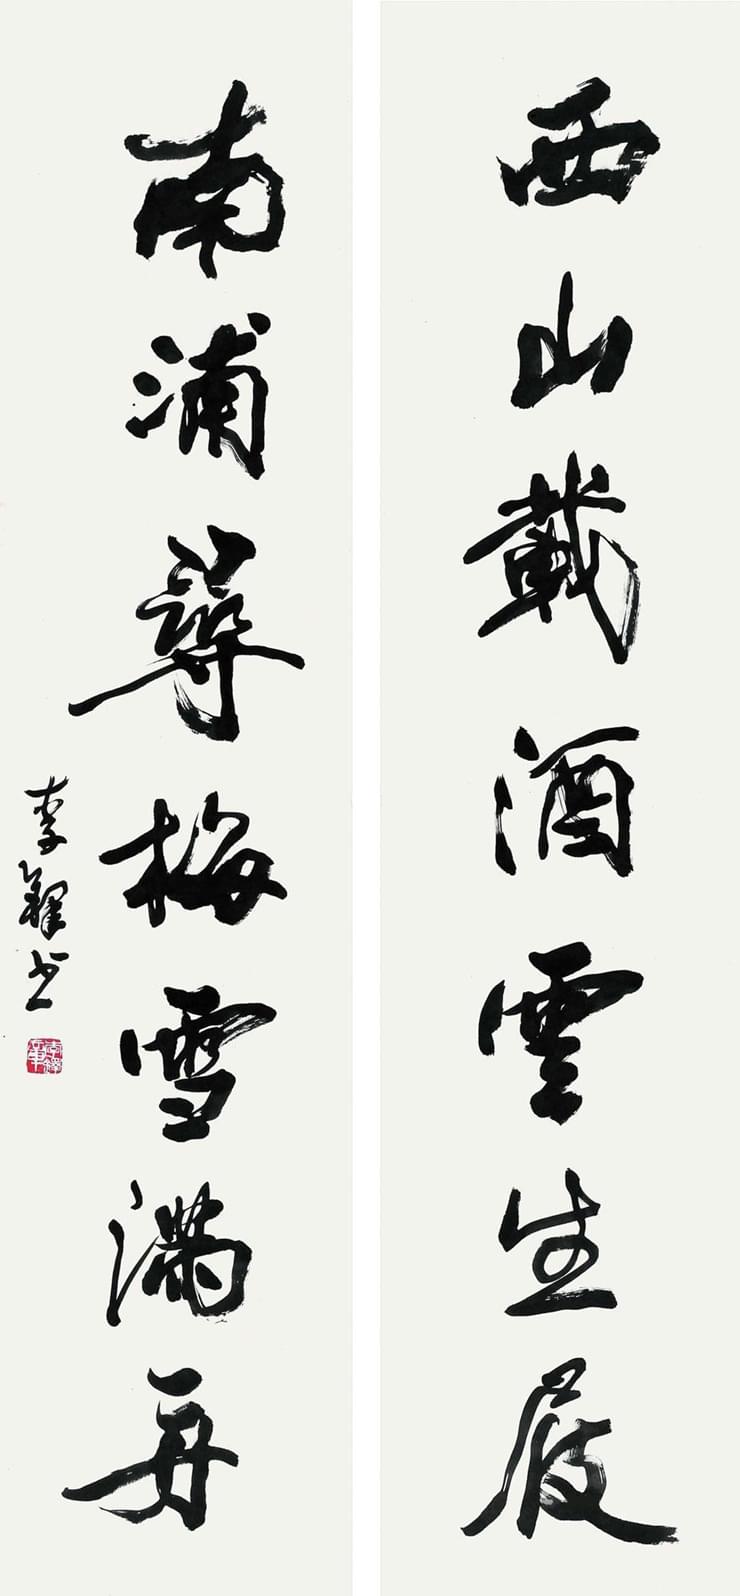 西山載酒雲生屐
南浦尋梅雪滿舟
李鐸书